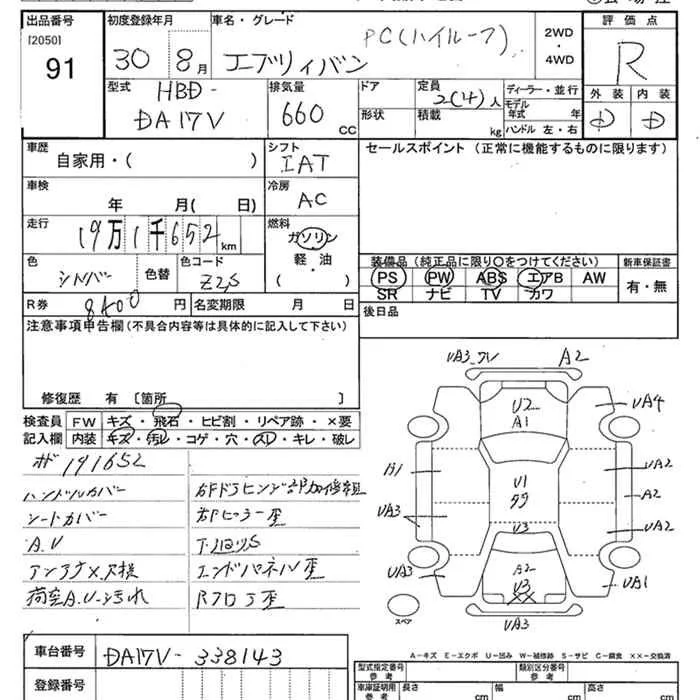 出品番号 初度登録年月 車名・グレード 評価点
[2050]
91 30 8月 エブリィバン PC(ハイルーフ) 2WD・4WD R
型式 排気量 ドア 定員 ディーラー・並行 外装 内装
HBD-DA17V 660CC 2(4)人 モデル年式 年 D D
形状 積載 kg ハンドル 左・右
車歴 シフト セールスポイント (正常に機能するものに限ります)
自家用・( ) IAT
車検 冷房
年 月( 日) AC
走行 燃料
19万1千652km ガソリン
軽・油
( )
色 シルバー 色替 色コード Z2S
装備品(純正品に限り○をつけてください) 新車保証書
PS PW ABS エアB AW 有・無
SR ナビ TV カワ
R券 8400円 名変期限 月 日 後日品
注意事項申告欄(不具合内容等は具体的に記入して下さい)
修復歴 有 [箇所 ]
検査員 FW キズ・飛石・ヒビ割・リペア跡・×要
記入欄 内装 キズ・汚レ・コゲ・穴・スレ・キレ・破レ
191652
ハンドルカバー
シートカバー 右Fピラー歪
A.U
アンテナ欠損 エンドパネル歪
荷室A.U・汚れ Rフロア歪
UA3 A2
U2
A1 UA4
A1 UA2
U1 A2
UA3 U3 UA2
UA3 A2 UA1
U3
XX
UA3
スペア
A-キズ E-エクボ U-凹み W-補修跡 S-サビ C-腐食 ××-交換済
車台番号 DA17V-338143
登録番号
型式指定番号 参考 類別区分番号 参考
車庫証明用 参考 長さ cm 幅 cm 高さ cm